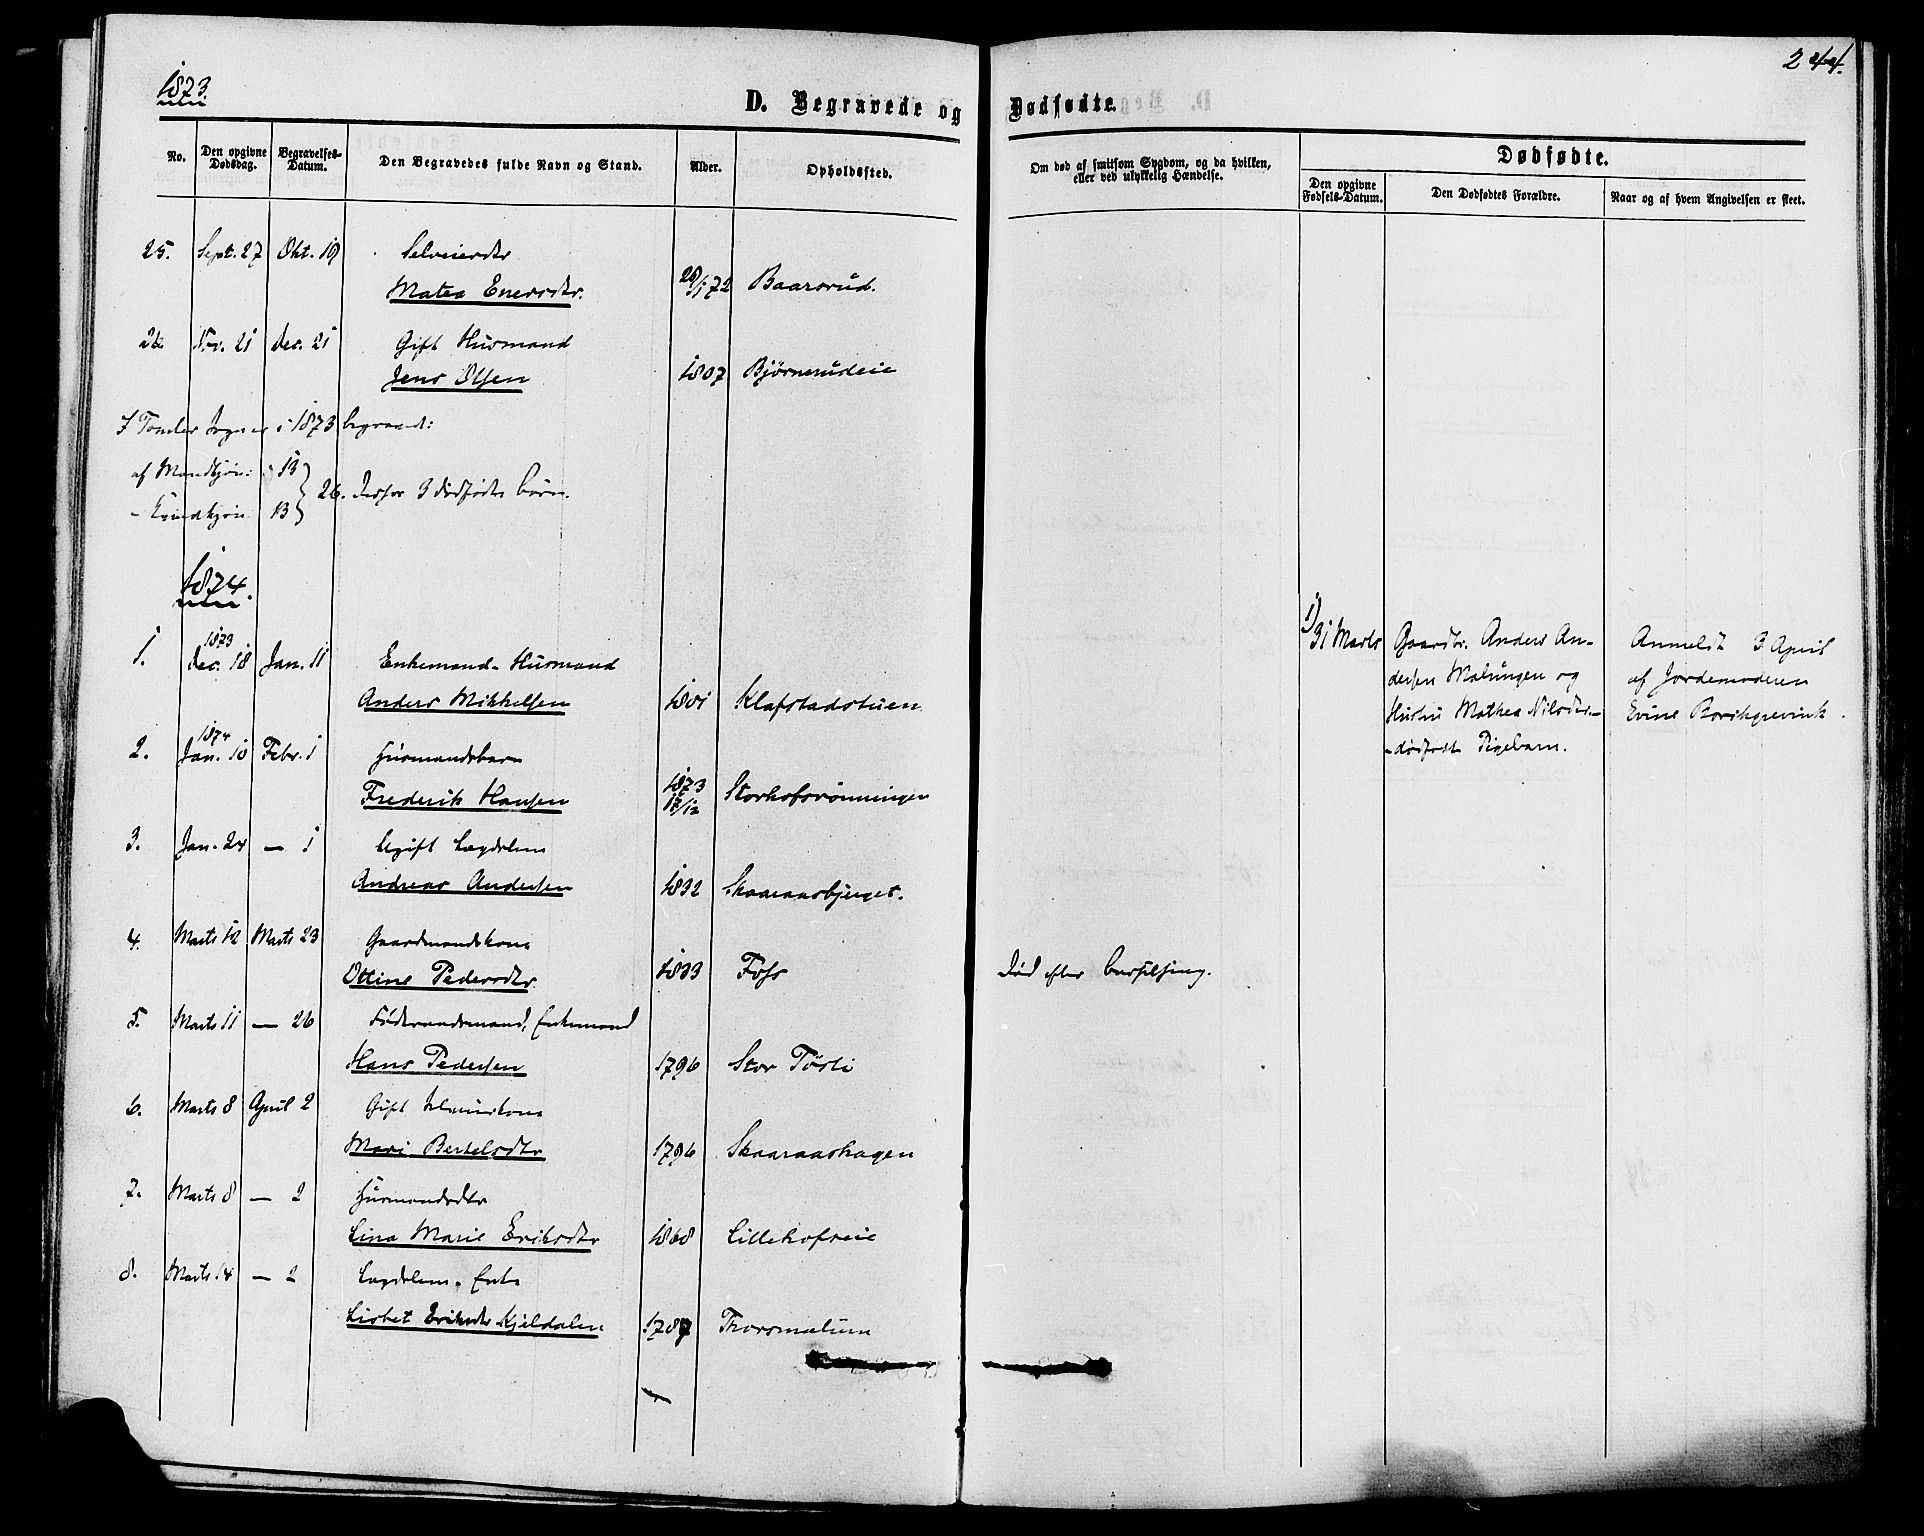 1873.
244.
D. Begravede og Dødfødte.
No.
Den opgivne Dødsdag.
Begravelses-Datum.
Den Begravedes fulde Navn og Stand.
Alder.
Opholdssted.
Om død af smitsom Sygdom, og da hvilken,
eller ved ulykkelig Hændelse.
Dødfødte.
Den opgivne Fødsels-Datum.
Den Dødfødtes Forældre.
Naar og af hvem Angivelsen er skeet.
25. Sept. 27 Okt. 19 Selveierdtr
Matea Enersdtr. 29/1 72 Baarsrud.
26. Nov. 21 Dec. 21 Gift Husmand
Jens Olsen 1807 Bjørnerudeie
I Tomler Sogn er i 1873 begravet:
af Mandkjøn: 13
- Kvindkjøn 13
26. Desfor 3 dødfødte børn.
1874.
1. 1873 Dec. 18 Jan. 11 Enkemand. Husmand
Anders Mikkelsen 1801 Klafstadstuen
2. 1874 Jan. 10 Febr. 1 Husmandsbarn
Frederik Hansen 1873 17/12 Storhofsrønningen
3. Jan. 24 — 1 Ugift Lægdslem
Andreas Andersen 1832 Skaaraasbjerget.
4. Marts 12 Marts 23 Gaardmandskone
Olline Pedersdtr. 1833 Foss Død efter barselseng.
5. Marts 11 — 26 Føderaadsmand, Enkemand
Hans Pedersen 1796 Stor Tøsti
6. Marts 8 April 2 Gift
Mari Bertelsdtr 1796 Skaaraashagen
7. Marts 8 — 2 Husmandsdtr
Lina Marie Eriksdtr 1868 Lillehofseie
8. Marts 14 — 2 Lægdslem. Enke
Lisbet Eriksdtr Kjeldalen 1787 Thorsmælum
1) 31 Marts
Gaardbr. Anders An-
dersen Malungen og
Hustru Mathea Nilsdtr.—
- dødfødt Pigebarn.
Anmeldt 3 April
af Jordemoderen
Evine Borchgrevink.